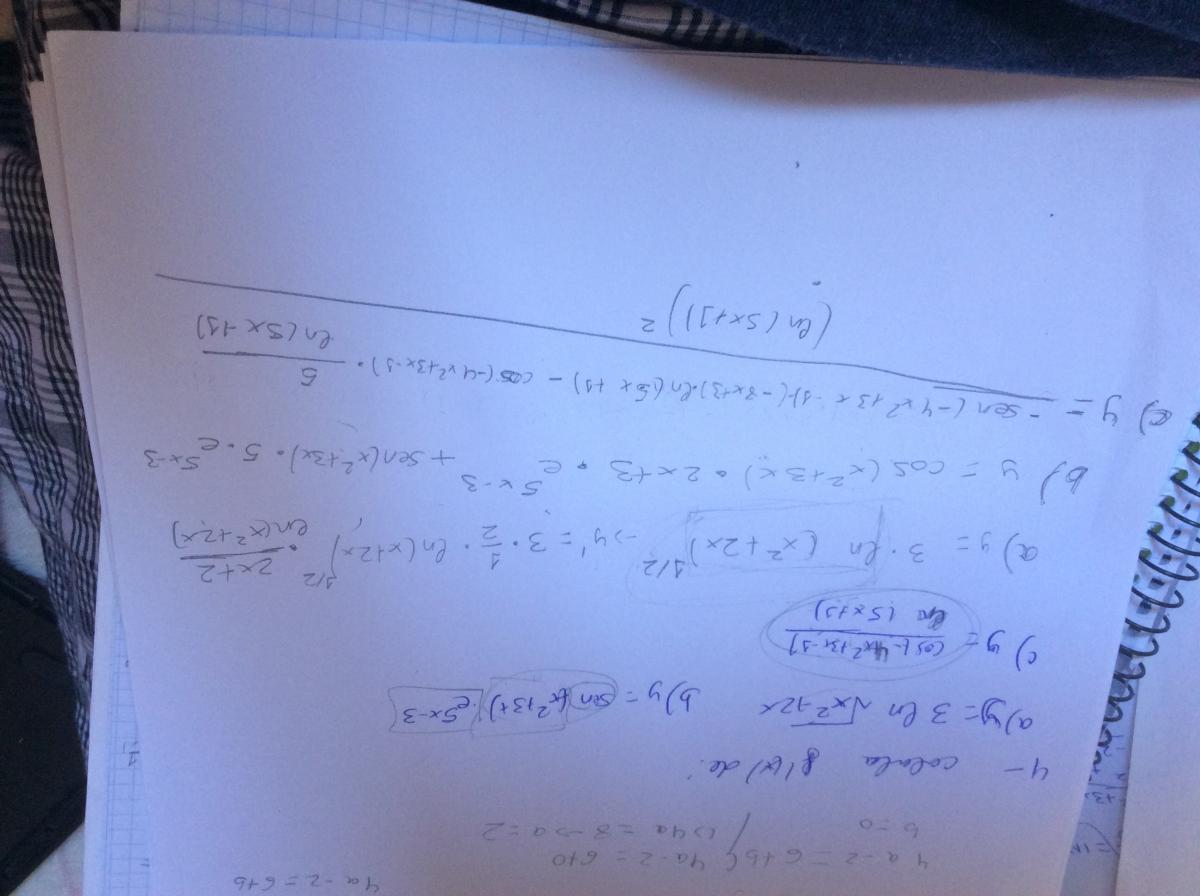 4a-2 = 6+b
4a-2 = 6+b { 4a-2 = 6+0
b=0 / ↳4a = 8 → a = 2
4- f'(x) de:
a) y = 3 ln √x²+2x b) y = sen (x²+3x) · e^5x-3
c) y = cos(-4x²+3x-1) / ln (5x+1)
a) y = 3 · ln (x²+2x)^1/2 → y' = 3 · 1/2 · ln (x+2x)^1/2 · 2x+2 / ln(x²+2x)
b) y = cos (x²+3x) · 2x+3 · e^5x-3 + sen(x²+3x) · 5 · e^5x-3
c) y = -sen (-4x²+3x-1)·(-8x+3)·ln (5x+1) - cos(-4x²+3x-1) · 5 / ln (5x+1)
(ln (5x+1))²